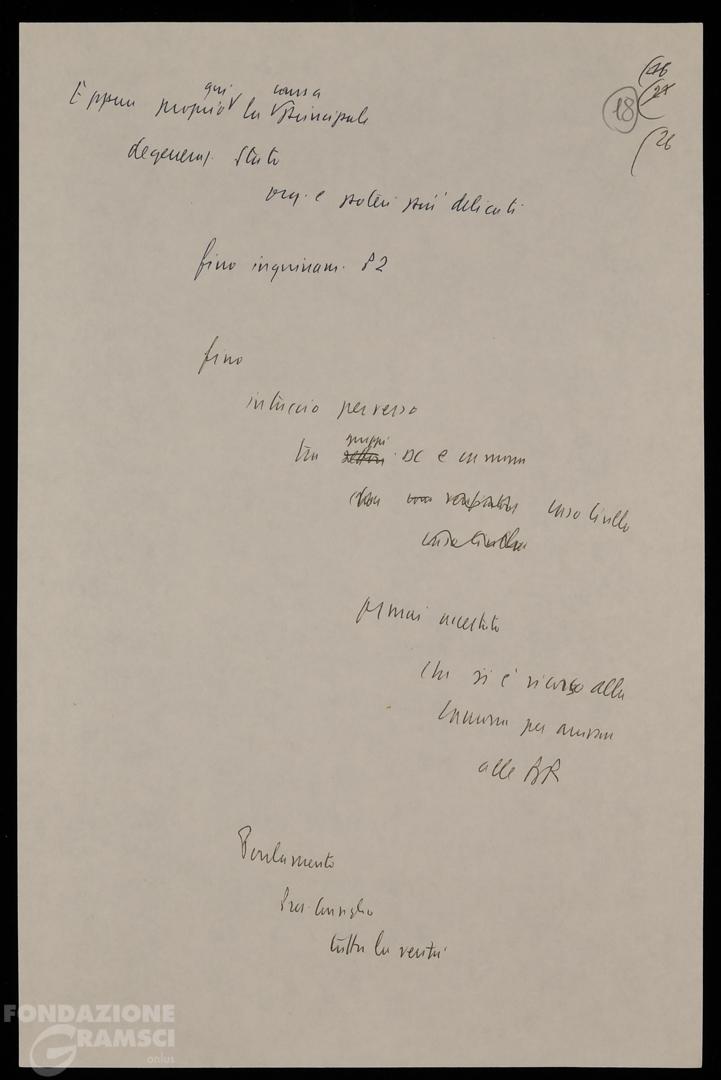 Eppure proprio qui la causa principale
(26
(27
18
(26
degeneraz. Stato
org. e poteri più delicati
fino inquinam. P2
fino
intreccio perverso
tra gruppi DC e camorra
caso Cirillo
ormai accertato
che si è ricorso alla
camorra per arrivare
alle BR
Parlamento
Pres. Consiglio
tutta la verità
FONDAZIONE
GRAMSCI
onlus